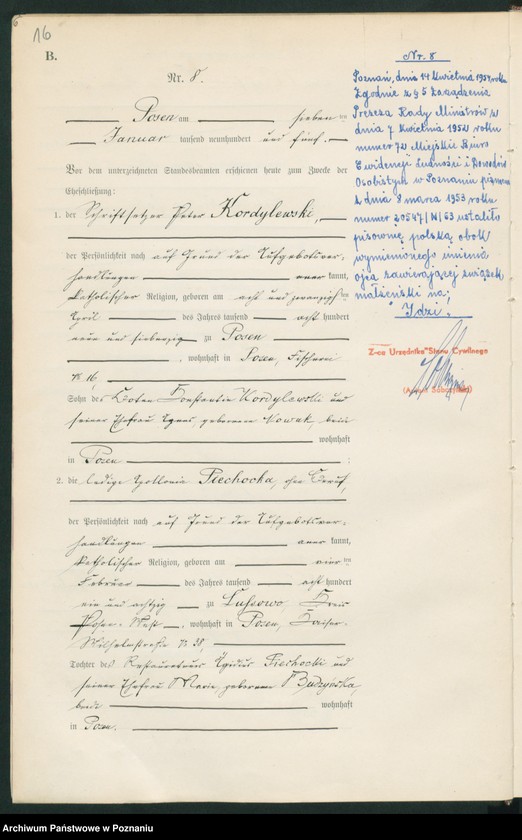 16
B.
Nr. 8.
Posen am sieben ten
Januar tausend neunhundert und fünf.
Vor dem unterzeichneten Standesbeamten erschienen heute zum Zwecke der
Eheschließung:
1. der Schriftsetzer Peter Kordylewski,
der Persönlichkeit nach auf Grund der Aufgebotsver-
handlungen aner kannt,
katholischer Religion, geboren am acht und zwanzigsten
April des Jahres tausend acht hundert
neun und siebenzig zu Posen
, wohnhaft in Posen, Fischerei
No 16
Sohn des Boten Konstantin Kordylewski und
seiner Ehefrau Agnes geborenen Nowak, beide
wohnhaft
in Posen
2. die ledige Apollonia Piechocka, ohne Beruf,
der Persönlichkeit nach auf Grund der Aufgebotsver-
handlungen aner kannt,
katholischer Religion, geboren am ten
Februar des Jahres tausend acht hundert
ein und achtzig zu Lussowo, Kreis
Posen-West, wohnhaft in Posen, Kaiser-
Wilhelmstraße No 38,
Tochter des Restaurateurs Ägidius Piechocki und
seiner Ehefrau Marie geborenen Budzyńska,
beide wohnhaft
in Posen.
Nr. 8
Poznań, dnia 14 kwietnia 1954 roku
Zgodnie z § 5 Zarządzenia
Prezesa Rady Ministrów z
dnia 7 kwietnia 1952 roku
numer 72 Miejskie Biuro
Ewidencji Ludności i Dowodów
Osobistych w Poznaniu pismem
z dnia 8 marca 1953 roku
numer 20547/N/53 ustaliło
pisownię polską obok
wymienionego imienia
ojca zawierającej związek
małżeński na:
"Idzi".
Z-ca Urzędnika Stanu Cywilnego
Archiwum Państwowe w Poznaniu